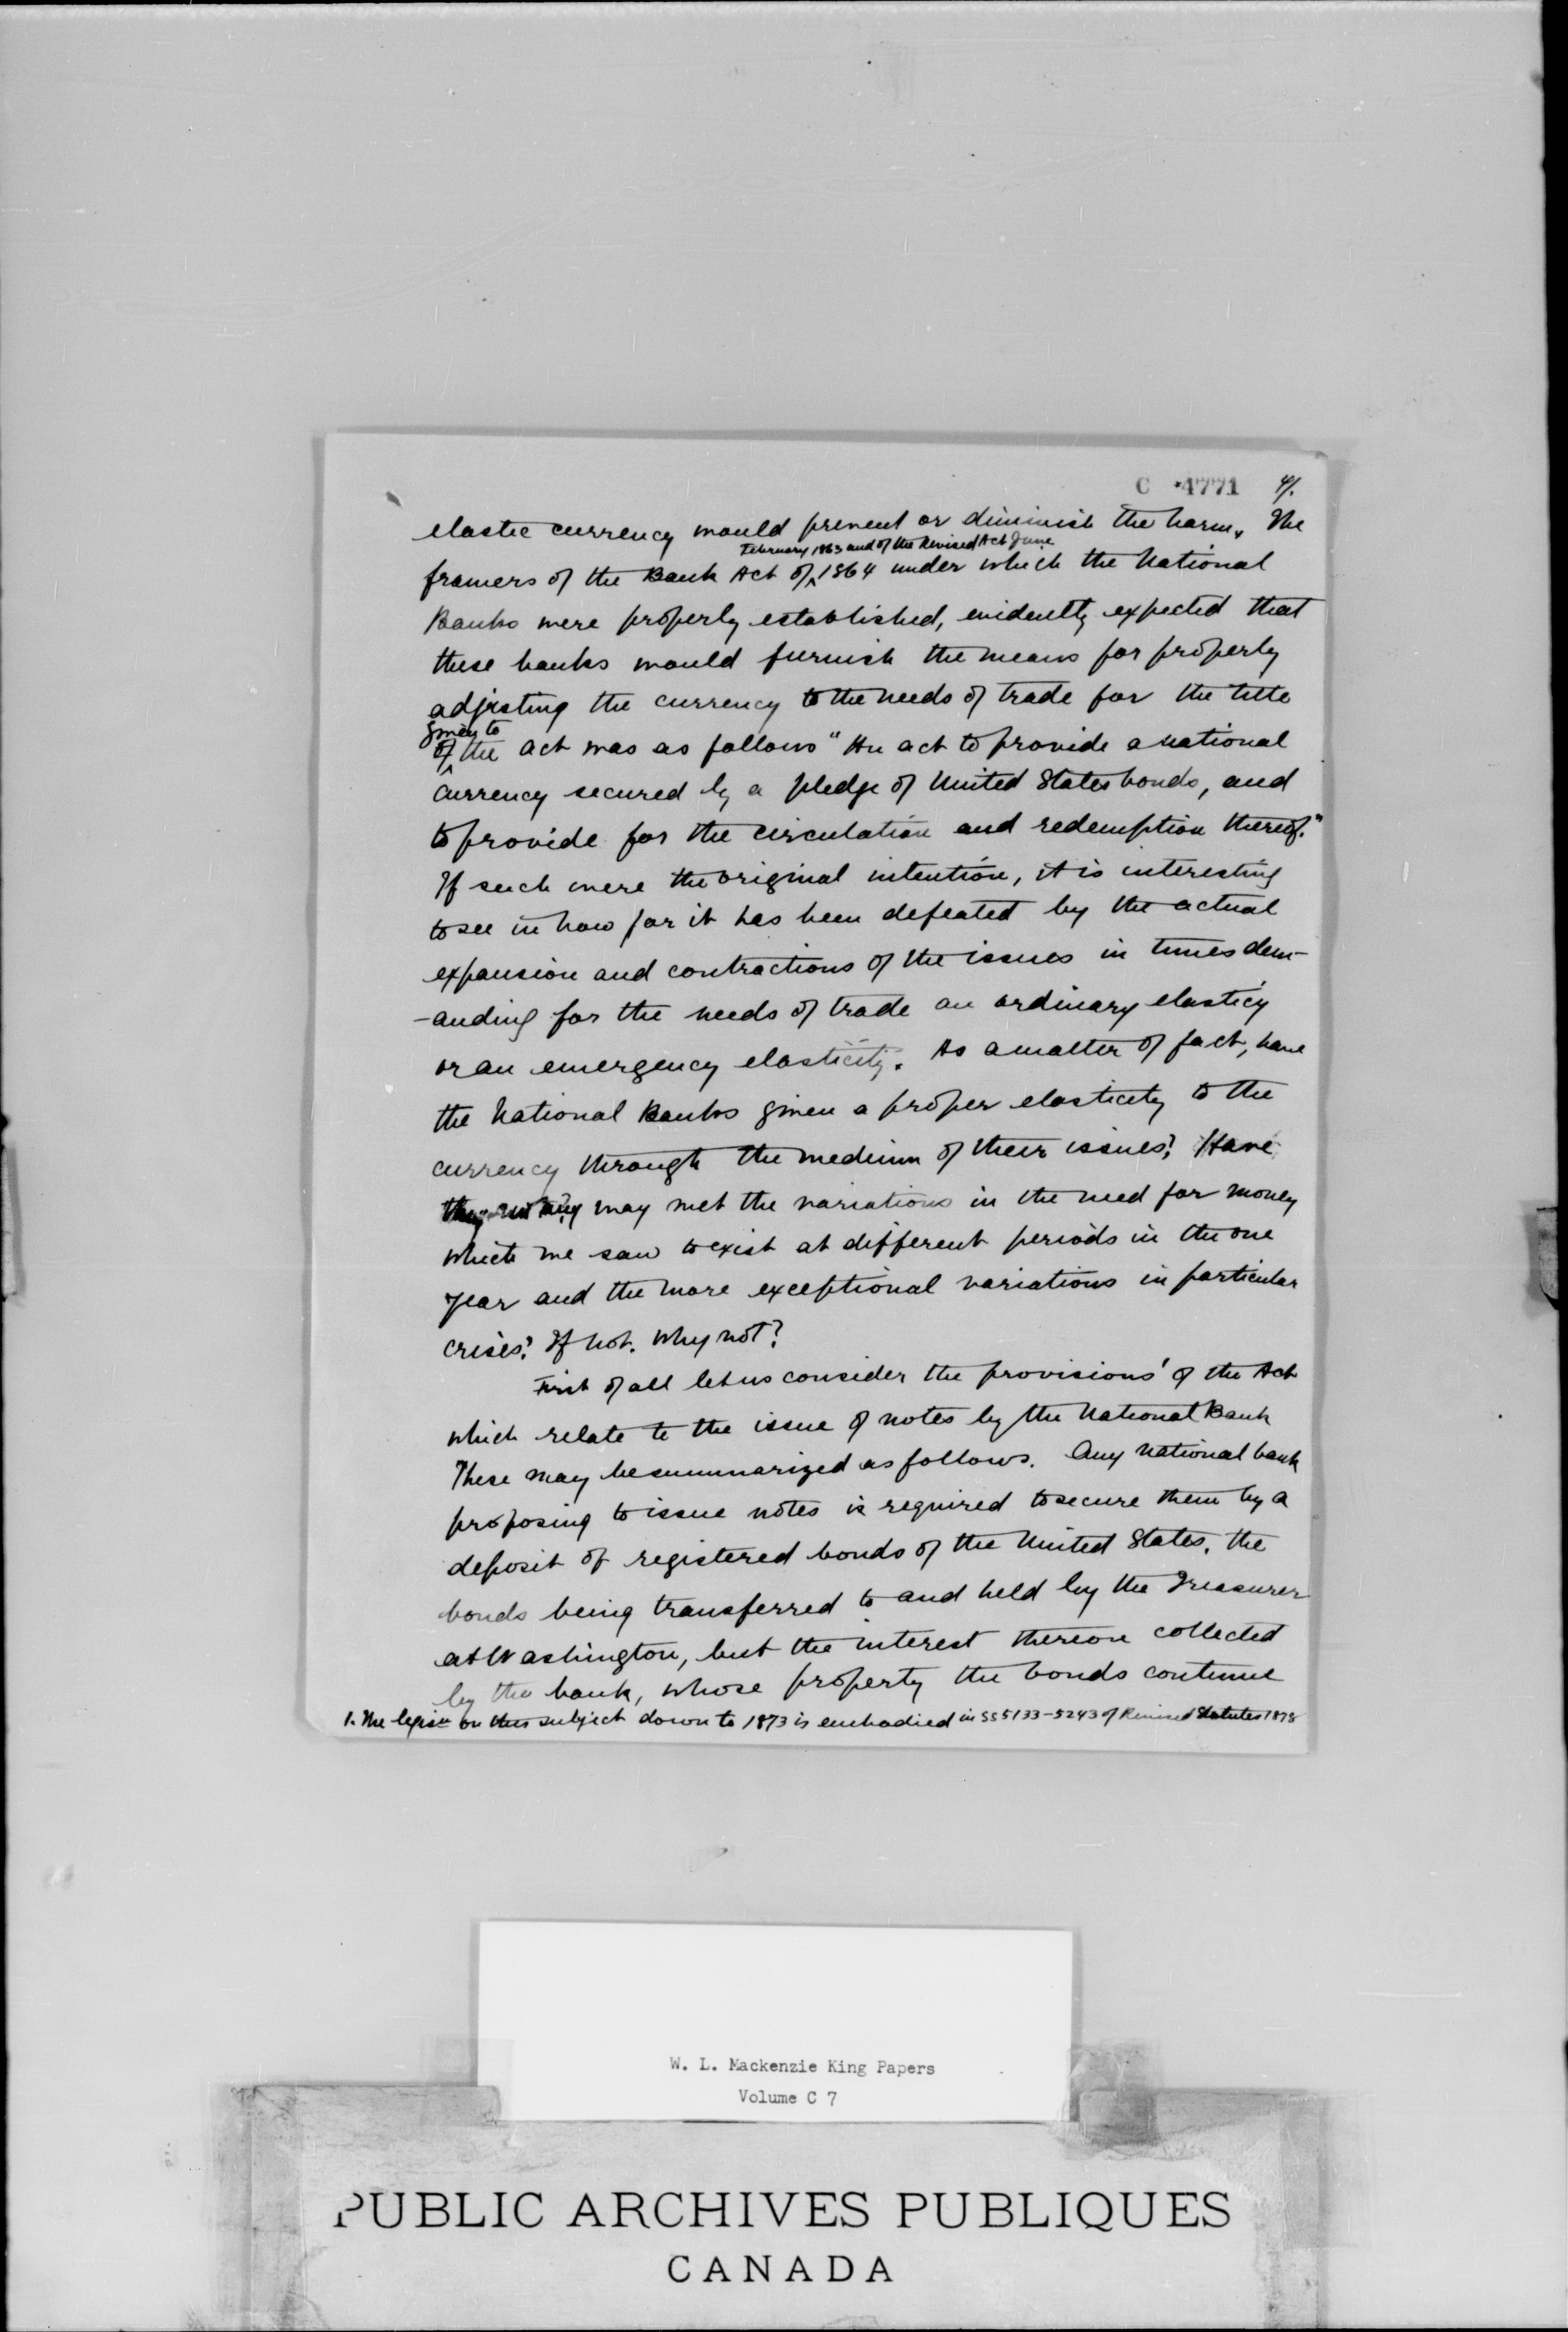 C 4771 4/.
elastic currency would prevent or diminish the harm. The
February 1863 and of the Revised Act June
framers of the Bank Act of 1864 under which the National
Banks were properly established, evidently expected that
these banks would furnish the means for properly
adjusting the currency to the needs of trade for the title
given to
of the act was as follows "An act to provide a national
currency secured by a pledge of United States bonds, and
to provide for the circulation and redemption thereof."
If such were the original intention, it is interesting
to see in how far it has been defeated by the actual
expansion and contractions of the issues in times dem-
-anding for the needs of trade an ordinary elasticy
or an emergency elasticity. As a matter of fact, have
the National Banks given a proper elasticity to the
currency through the medium of their issues? Have
they may met the variations in the need for money
which we saw to exist at different periods in the one
year and the more exceptional variations in particular
crises? If not, why not?
First of all let us consider the provisions' of the Act
which relate to the issue of notes by the National Bank
These may be summarized as follows. Any national bank
proposing to issue notes is required to secure them by a
deposit of registered bonds of the United States, the
bonds being transferred to and held by the Treasurer
at Washington, but the interest thereon collected
by the bank, whose property the bonds continue
1. The legisn on this subject down to 1873 is embodied in SS 5133-5243 of Revised Statutes 1878
W. L. Mackenzie King Papers
Volume C 7
PUBLIC ARCHIVES PUBLIQUES
CANADA